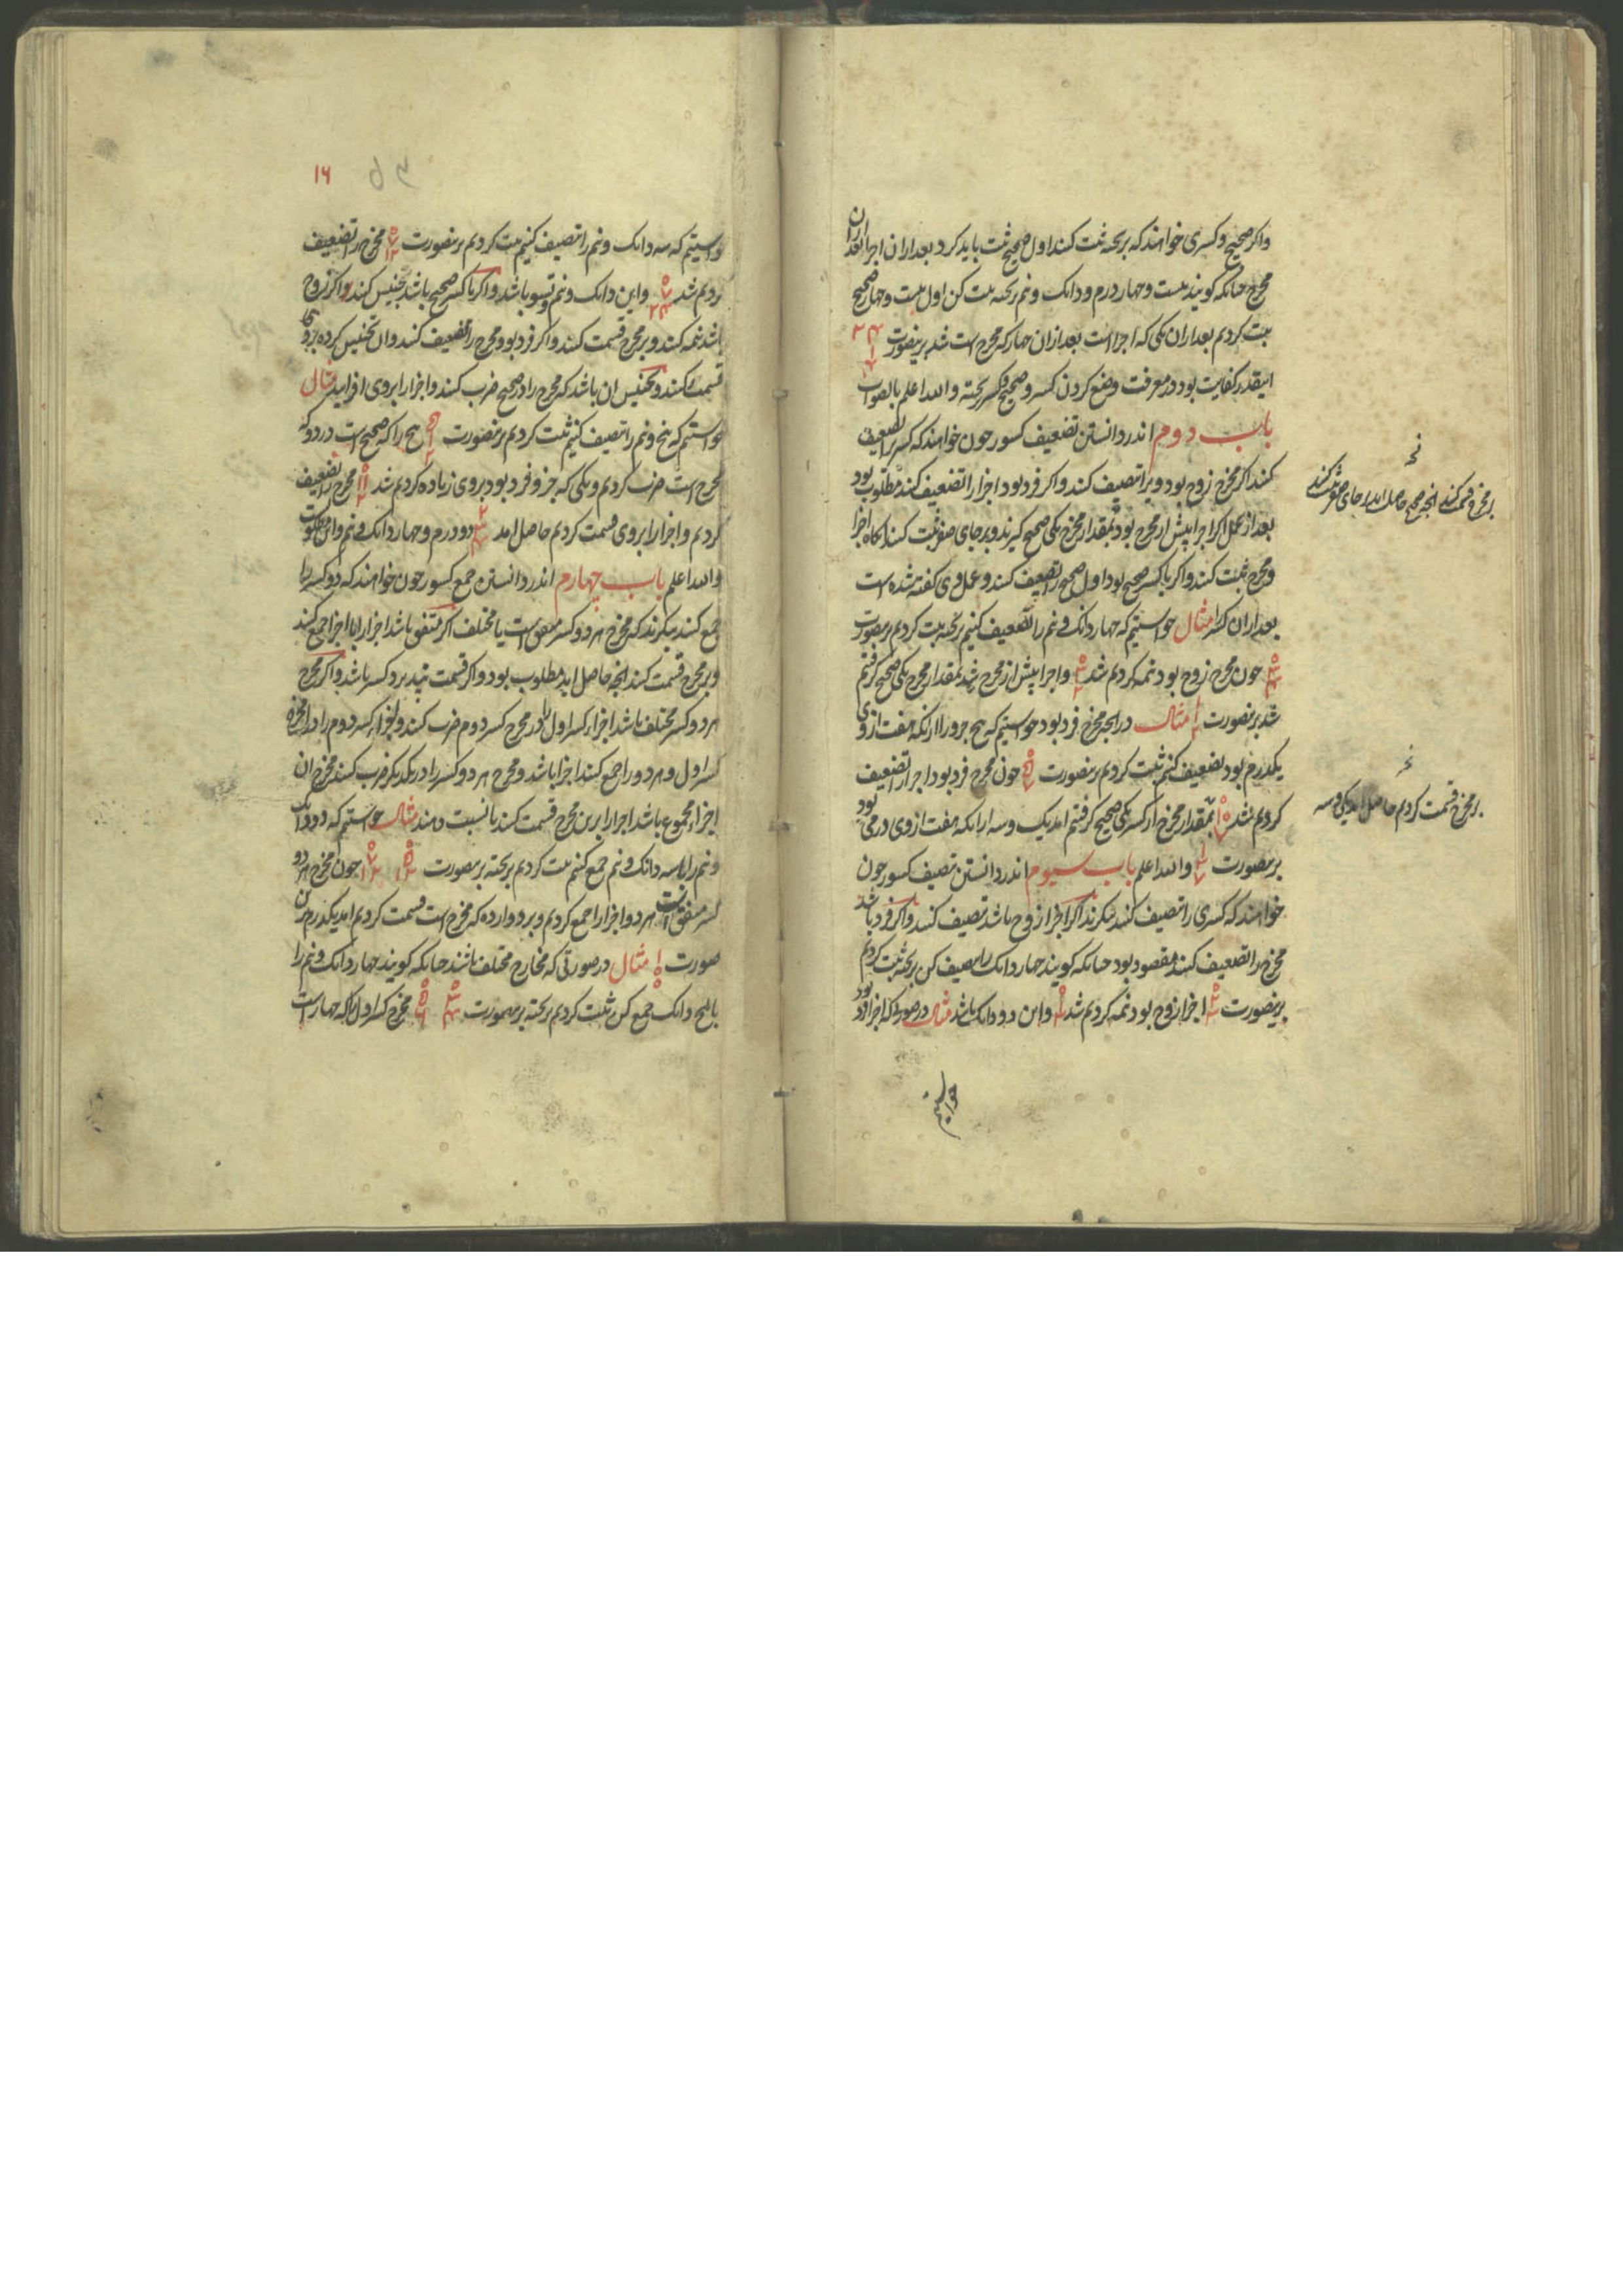 واکر صحیح و کسری خواهند که بر تخته ثبت کنند اول صحیح ثبت باید کرد بعد از ان اجرا بعد ازان
مخرج جنانکه کویند بیست و جهار درم و دانک و نیم بر تخته ثبت کن اول بیست و جهار صحیح
ثبت کردیم بعد ازان یکی که اجزا است بعد ازان جهار که مخرج است شد برینصورت ۲۴ ۱ ۴
اینقدر کفایت بود در معرفت وضع کردن کسر و صحیح و کسر بر تخته والله اعلم بالصواب
باب دوم اندر دانستن تضعیف کسور جون خواهند که کسری را تضعیف
کنند اکر مخرج زوج بود ویرا تنصیف کنند و اکر فرد بود اجزا را تضعیف کنند مطلوب بود
بعد از عمل اکر اجزا بیش از مخرج بود بمقدار مخرج یکی صحیح کیرند و بر جای صفر ثبت کنند انکاه اجزا
و مخرج ثبت کنند و اکر با کسر صحیح بود اول صحیح را تضعیف کنند و عمل وی کفته شده است
بعد ازان کسر را مثال خواستیم که جهار دانک و نیم را تضعیف کنیم بر تخته ثبت کردیم برینصورت
جون مخرج زوج بود نیمه کردیم شد و اجزا بیش از مخرج شد بمقدار مخرج یکی صحیح کرفتیم
شد برینصورت مثال در انجه مخرج فرد بود خواستیم که بنج جزو را از انکه هفت از وی
یکدرم بود تضعیف کنیم ثبت کردیم برینصورت جون مخرج فرد بود اجزا را تضعیف
کردیم شد بمقدار مخرج از کسر یکی صحیح کرفتیم امد یک و سه از انکه هفت از وی درمی بود
برینصورت والله اعلم باب سیوم اندر دانستن تنصیف کسور جون
خواهند که کسری را تنصیف کنند بنکرند اکر اجزا زوج باشد تنصیف کنند و اکر فرد باشد
مخرج را تضعیف کنند مقصود بود جنانکه کویند جهار دانک را تنصیف کن بر تخته ثبت کردیم
برینصورت اجزا زوج بود نیمه کردیم شد و این دو دانک باشد مثال در صورتی که اجزا فرد بود
خواستیم
بر مخرج قسمت کنند انجه صحیح حاصل اید بر جای صفر ثبت کنند
بر مخرج قسمت کردیم حاصل امد یکی و سه
۱۶
خواستیم که سه دانک و نیم را تنصیف کنیم ثبت کردیم برینصورت ۷ ۱۲ مخرج را تضعیف
کردیم شد ۷ ۲۴ و این دانک و نیم و تسو باشد و اکر با کسر صحیح باشد تجنیس کنند و اکر زوج
باشد نیمه کنند و بر مخرج قسمت کنند و اکر فرد بود مخرج را تضعیف کنند و ان تجنیس کرده بر وی
قسمت کنند و تجنیس ان باشد که مخرج را در صحیح ضرب کنند و اجزا را بروی افزایند مثال
خواستیم که بنج و نیم را تنصیف کنیم ثبت کردیم برینصورت بنج را که صحیح است در دو که
مخرج است ضرب کردیم و یکی که جزو فرد بود بروی زیاده کردیم شد ۱۱ ۲ مخرج را تضعیف
کردیم و اجزا را بروی قسمت کردیم حاصل امد ۲ ۳ ۴ دو درم و جهار دانک و نیم و این مطلوبست
والله اعلم باب چهارم اندر دانستن جمع کسور جون خواهند که دو کسر را
جمع کنند بنکرند که مخرج هر دو کسر متفق است یا مختلف اکر متفق باشد اجزا را با اجزا جمع کنند
و بر مخرج قسمت کنند انجه حاصل اید مطلوب بود و اکر قسمت نپذیرد کسر باشد و اکر مخرج
هر دو کسر مختلف باشد اجزاء کسر اول را در مخرج کسر دوم ضرب کنند و اجزاء کسر دوم را در مخرج
کسر اول و هر دو را جمع کنند اجزا باشد و مخرج هر دو کسر را در یکدیکر ضرب کنند مخرج ان
اجزاء مجموع باشد اجزا را برین مخرج قسمت کنند یا نسبت دهند مثال خواستیم که دو دانک
و نیم را با سه دانک و نیم جمع کنیم ثبت کردیم بر تخته برینصورت ۵ ۱۲ ۷ ۱۲ جون مخرج هر دو
کسر متفق است هر دو اجزا را جمع کردیم و بر دوازده که مخرج است قسمت کردیم امد یکدرم برین
صورت مثال در صورتی که مخارج مختلف باشند جنانکه کویند جهار دانک و نیم را
با بنج دانک جمع کن ثبت کردیم بر تخته برینصورت ۳ ۴ ۵ ۶ مخرج کسر اول را که جهار است